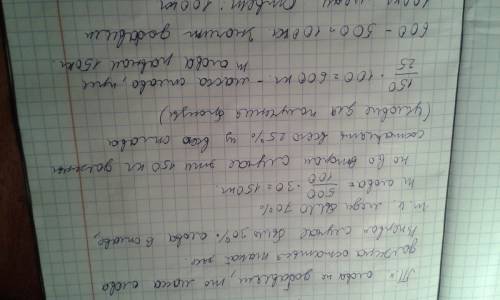 Т.к. олова не добавляли, то масса олова
должна остаться такой же.
В первом случае было 30% олова в сплаве,
т.к. меди было 70%
m олова = 500/100 · 30 = 150кг.
но во втором случае эти 150 кг должны
составлять всего 25% из всего сплава
(условие для получения бронзы)
150/25 · 100 = 600 кг - масса сплава, при
m олова равной 150кг.
600 - 500 = 100кг значит добавили
100кг меди Ответ: 100кг